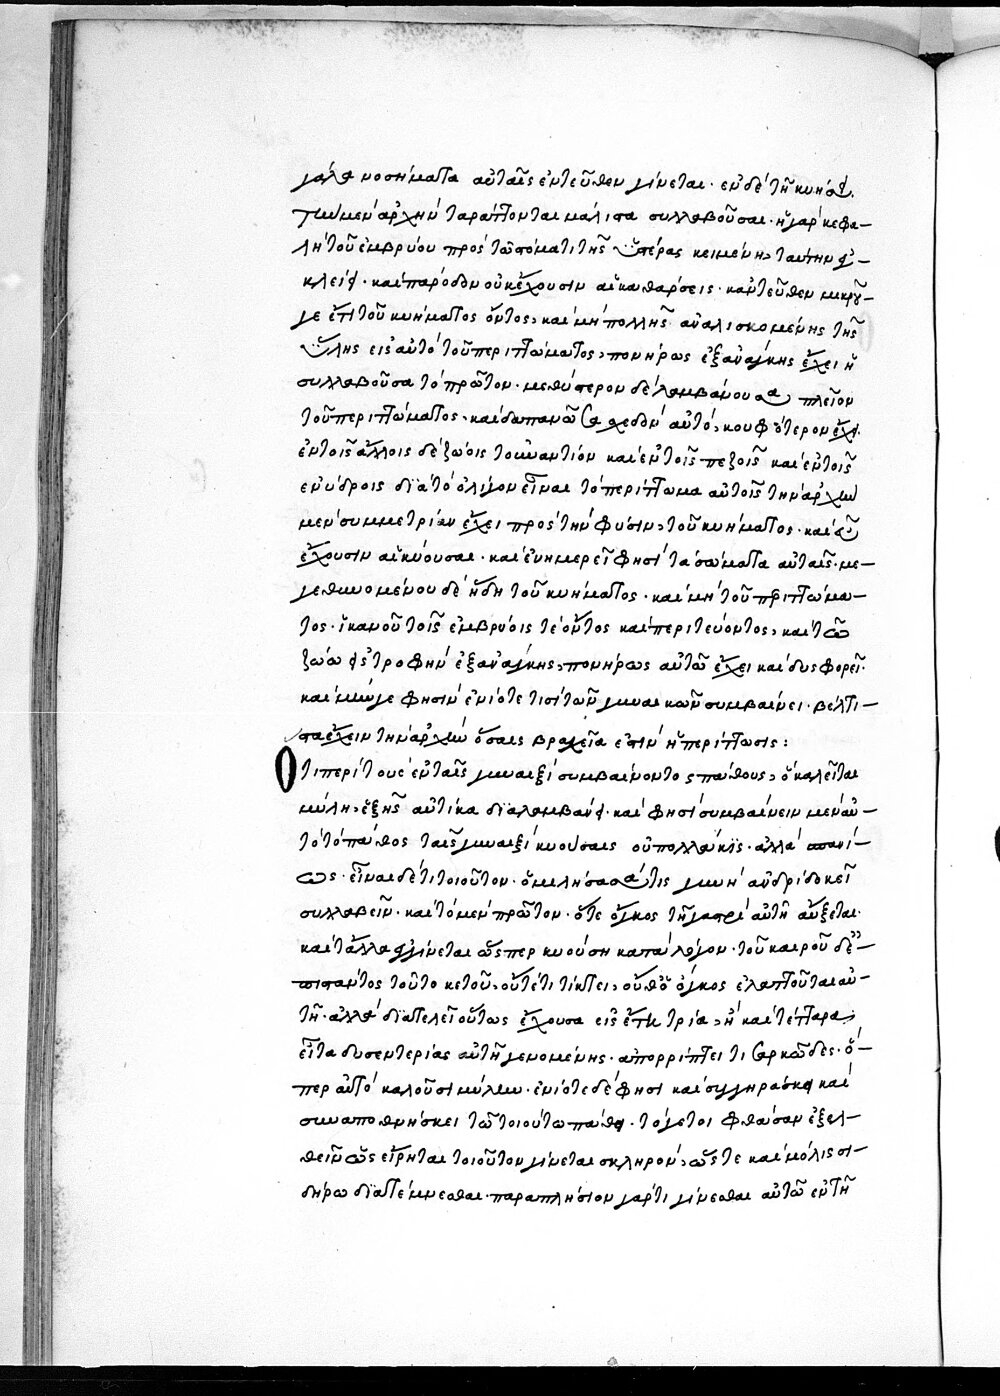 γάλα νοσήματα αὐταῖς ἐντεῦθεν γίνεται. ἐν δὲ τῆ κυήσει
τὴν μὲν ἀρχὴν ταράττονται μάλιστα συλλαβοῦσαι. ἡ γὰρ κεφα-
λὴ τοῦ ἐμβρύου πρὸς τῶ στόματι τῆς ὑστέρας κειμένη, ταύτην
κλείει. καὶ πάροδον οὐκ ἔχουσιν αἱ καθάρσεις. κἀντεῦθεν μικροῦ
γε ἔτι τοῦ κυήματος ὄντος, καὶ μὴ πολλῆς ἀναλισκομένης τῆς
ὕλης εἰς αὐτὸ τοῦ περιττώματος, πονήρως ἐξανάγκης ἔχει ἡ
συλλαβοῦσα τὸ πρῶτον. μεθύστερον δὲ λαμβάνουσα πλεῖον
τοῦ περιττώματος, καὶ δαπανῶσα σχεδὸν αὐτό, κουφότερον ἔχει.
ἐν τοῖς ἄλλοις δὲ ζώοις τοὐναντίον καὶ ἐν τοῖς πεζοῖς καὶ ἐν τοῖς
ἐνύδροις διὰ τὸ ὀλίγον εἶναι τὸ περίττωμα αὐτοῖς τὴν ἀρχὴν
μὲν συμμετρίαν ἔχει πρὸς τὴν φύσιν, τοῦ κυήματος. καὶ εὖ
ἔχουσιν αἱ κύουσαι. καὶ εὐημερεῖ φησὶ τὰ σώματα αὐταῖς. με-
γεθυνομένου δὲ ἤδη τοῦ κυήματος. καὶ μὴ τοῦ περιττώμα-
τος. ἱκανοῦ τοῖς ἐμβρύοις τε ὄντος καὶ περιτεύοντος, καὶ τῶ
ζώω εἰς τροφὴν ἐξανάγκης, πονήρως αὐτῶ ἔχει καὶ δυσφορεῖ.
καὶ μήν γε φησὶν ἐνίοτε τισὶ τῶν γυναικῶν συμβαίνει. βέλτι-
στα ἔχειν τὴν ἀρχὴν ὅσαις βραχεῖα ἐστὶν ἡ περίττωσις:
Ὅτι περὶ τοῦ ἐν ταῖς γυναιξὶ συμβαίνοντος πάθους, ὃ καλεῖται
μύλη, ἑξῆς αὐτίκα διαλαμβάνει. καὶ φησὶ συμβαίνειν μὲν αὐ-
τὸ τὸ πάθος ταῖς γυναιξὶ κυούσαις οὐ πολλάκις. ἀλλὰ σπανί-
ως. εἶναι δέ τι τοιοῦτον. ὁμιλήσασά τις γυνὴ ἀνδρὶ δοκεῖ
συλλαβεῖν. καὶ τὸ μὲν πρῶτον. ὅτε ὄγκος τῆ γαστρὶ αὐτῆ αὔξεται.
καὶ τἄλλα γίνεται ὥσπερ κυούση κατὰ λόγον. τοῦ καιροῦ δὲ
πιστάντος τοῦ τοκετοῦ, οὔτέ τι τίκτει, οὔθ' ὁ ὄγκος ἐλαττοῦται αὐ-
τῆ. ἀλλὰ διατελεῖ οὕτως ἔχουσα εἰς ἔτη τρία, ἢ καὶ τέτταρα,
εἶτα δυσεντερίας αὐτῆ γενομένης. ἀπορρίπτει τι σαρκῶδες. ὅ-
περ αὐτὸ καλοῦσι μύλην. ἐνίοτε δὲ φησι καὶ συγγηράσκει καὶ
συναποθνήσκει τῶ τοιούτω πάθει. τό γέ τοι φθάσαν ἐξελ-
θεῖν ὡς εἴρηται τοιοῦτον γίνεται σκληρόν, ὥστε καὶ μόλις σι-
δήρω διατέμνεσθαι. παραπλήσιον γάρ τι γίνεσθαι αὐτῶ ἐν τῆ